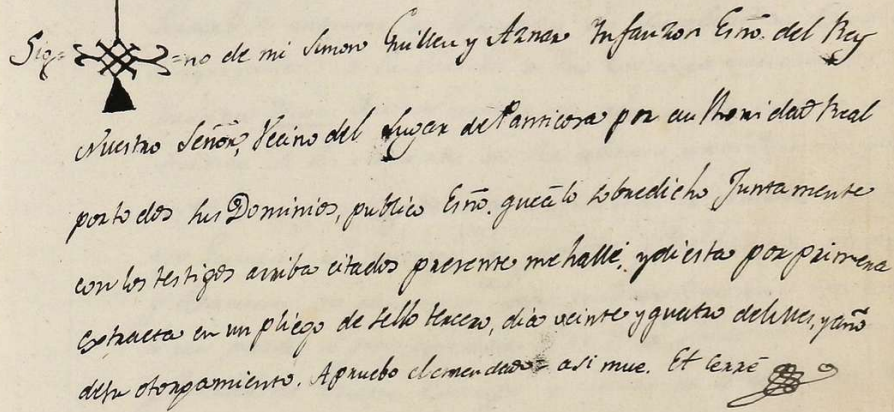 Sig= =no de mi Simon Guillen y Aznar Infanzon Esño. del Rey
Nuestro Señor, Vecino del Lugar de Panticosa por authoridad Real
por todos sus Dominios, publico Esño. que a lo sobredicho Juntamente
con los testigos arriba citados presente me hallé, y di esta por primera
extracta en un pliego de sello tercero, dia veinte y quatro del Mes, y año
de su otorgamiento. Apruebo el emendado= asi mue. Et Cerré